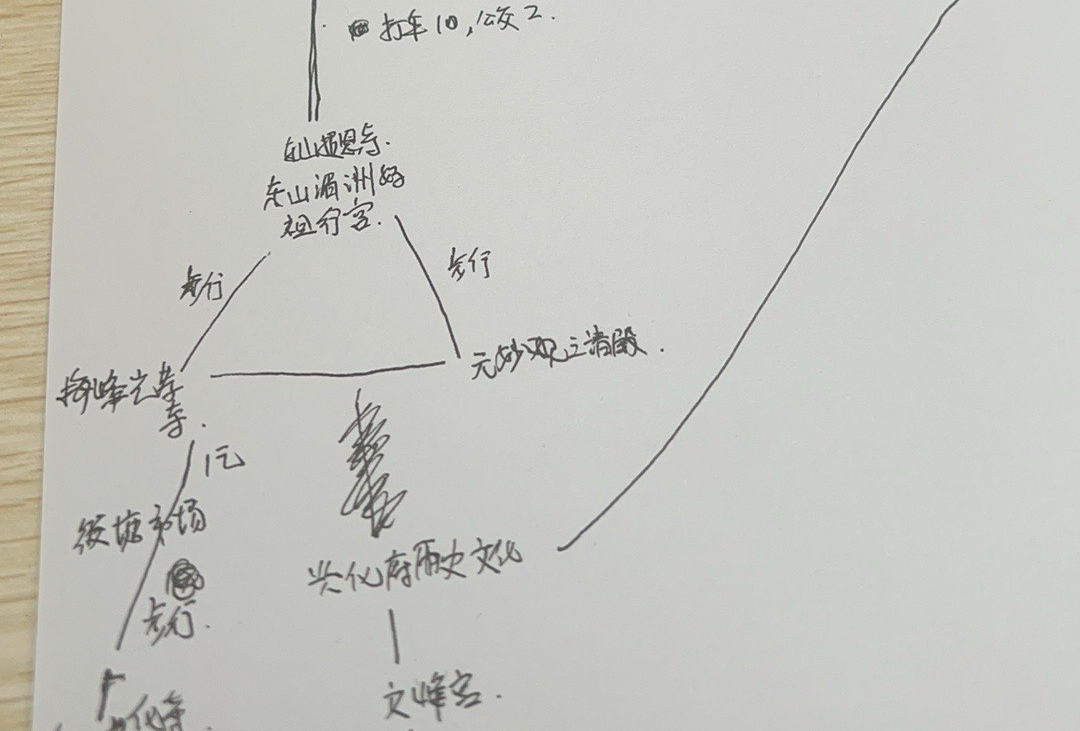 打车10,公交2.
东山湄洲妈
祖行宫.
步行
步行
元妙观三清殿.
梅峰光孝
寺.
1元
市场
步行.
兴化府历史文化
文峰宫.
化寺.